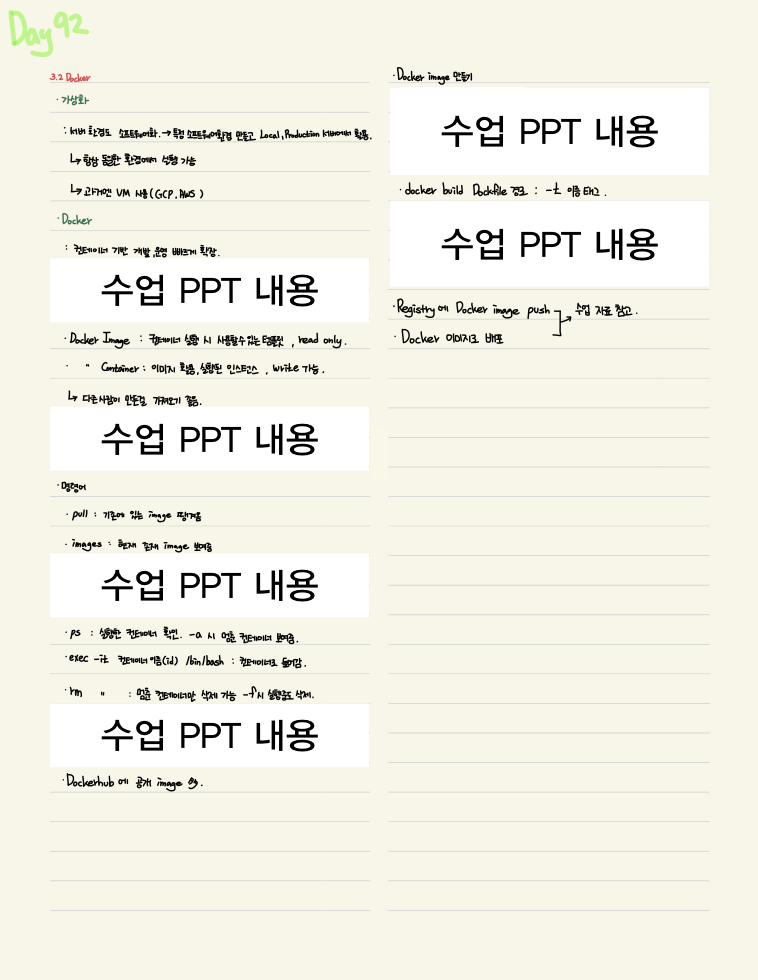 Day 92
3.2 Docker
· 가상화
: 서버 환경도 소프트웨어화. → 특정 소프트웨어환경 만들고 Local, Production 서버에서 활용.
↳ 항상 동일한 환경에서 실행 가능
↳ 과거엔 VM 사용 (GCP, AWS)
· Docker
: 컨테이너 기반 개발, 운영 빠르게 확장.
수업 PPT 내용
· Docker Image : 컨테이너 실행 시 사용할수있는 템플릿, read only.
· " Container : 이미지 활용, 실행된 인스턴스, write 가능.
↳ 다른사람이 만든걸 가져오기 좋음.
수업 PPT 내용
· 명령어
· pull : 기존에 있는 image 땡겨옴
· images : 현재 존재 image 보여줌
수업 PPT 내용
· ps : 실행한 컨테이너 확인. -a 시 멈춘 컨테이너 보여줌.
· exec -it 컨테이너이름(id) /bin/bash : 컨테이너로 들어감.
· rm " : 멈춘 컨테이너만 삭제 가능 -f 시 실행중도 삭제.
수업 PPT 내용
· Dockerhub 에 공개 image 多.
· Docker image 만들기
수업 PPT 내용
· docker build Dockfile 경로 : -t 이름태그.
수업 PPT 내용
· Registry에 Docker image push → 수업 자료 참고.
· Docker 이미지로 배포